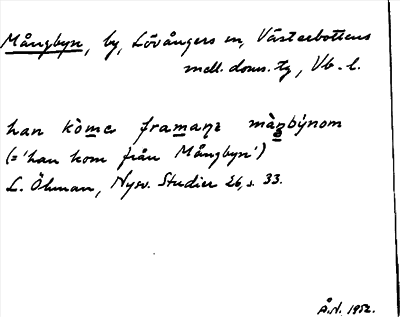 Mångbyn, by, Lövångers sn, Västerbottens
mell. doms. tg, Vb. l.
han kòme framaŋz màŋbýnom
(='han kom från Mångbyn')
L. Öhman, Nysv. Studier 26, s. 33.
Å.N. 1952.